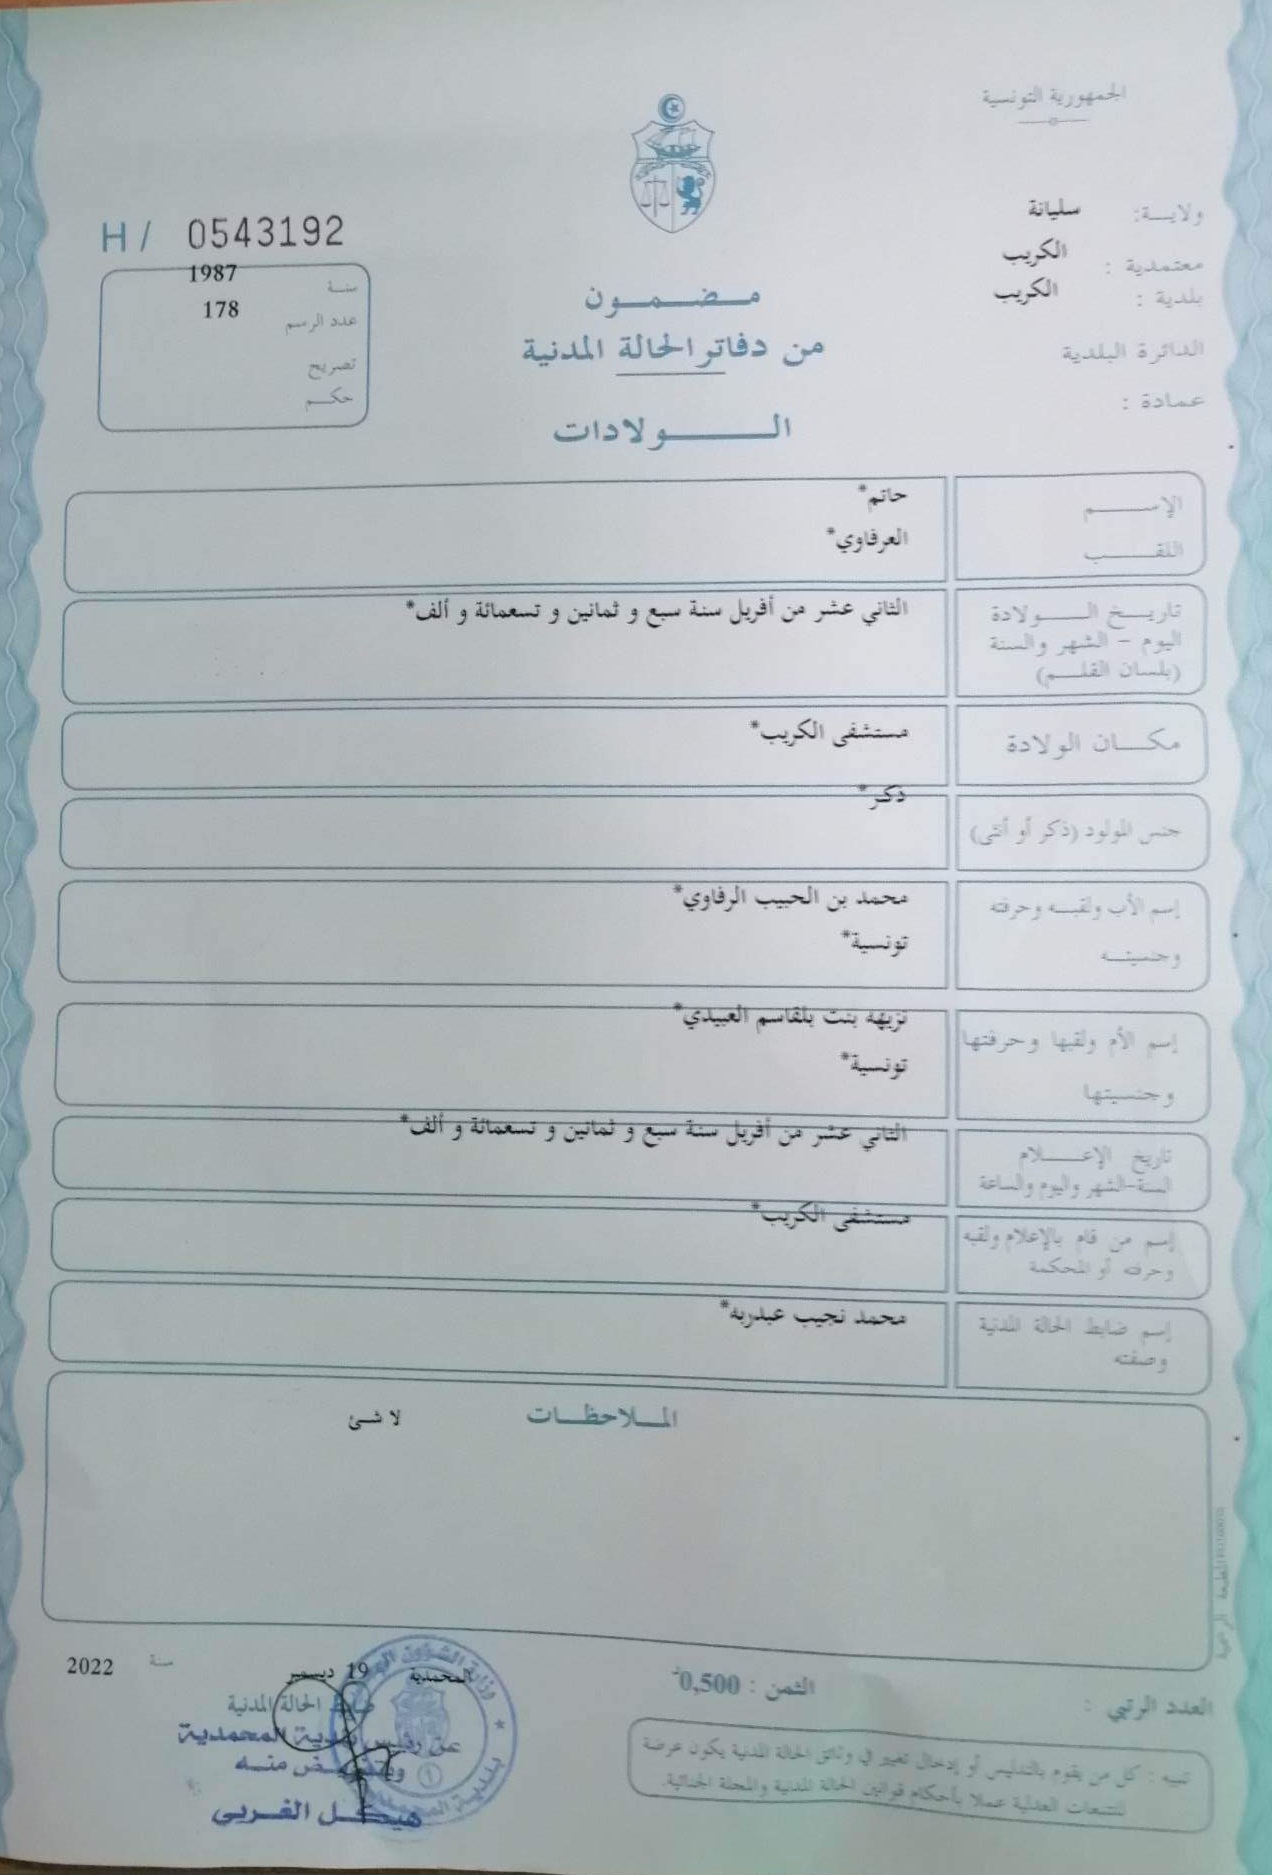 الجمهورية التونسية
ولايــة: سليانة
معتمدية : الكريب
بلدية : الكريب
الدائرة البلدية
عمادة :
H / 0543192
سنة 1987
عدد الرسم 178
تصريح
حكم
مـضـمـون
من دفاتر الحالة المدنية
الـولادات
الإسـم حاتم*
اللقـب العرفاوي*
تاريـخ الـولادة الثاني عشر من أفريل سنة سبع و ثمانين و تسعمائة و ألف*
اليوم - الشهر والسنة
(بلسان القلـم)
مكـان الولادة مستشفى الكريب*
جنس المولود (ذكر أو أنثى) ذكر*
إسم الأب ولقبـه وحرفته محمد بن الحبيب الرفاوي*
وجنسيتـه تونسية*
إسم الأم ولقبها وحرفتها نزيهة بنت بلقاسم العبيدي*
وجنسيتها تونسية*
تاريخ الإعـلام الثاني عشر من أفريل سنة سبع و ثمانين و تسعمائة و ألف*
السنة-الشهر واليوم والساعة
إسم من قام بالإعلام ولقبه مستشفى الكريب*
وحرفته أو المحكمة
إسم ضابط الحالة المدنية محمد نجيب عبدربه*
وصفته
المـلاحظـات لا شئ
المطبعة الرسمية
العدد الرتبي :
الثمن : 0,500د
المحمدية 19 ديسمبر سنة 2022
ضابط الحالة المدنية
عن رئيس بلدية المحمدية
وبتفويض منه
هيكل الغربي
وزارة الشؤون
بلدية المحمدية
تنبيه : كل من يقوم بالتدليس أو إدخال تغيير في وثائق الحالة المدنية يكون عرضة
للتتبعات العدلية عملا بأحكام قوانين الحالة المدنية والمجلة الجنائية.